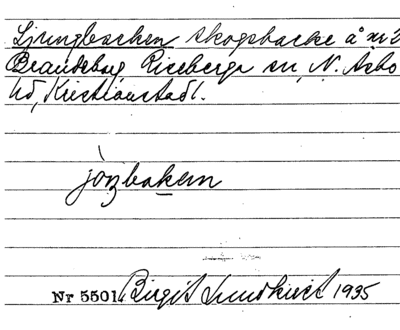 Ljungbacken skogsbacke å nr 2
Brandeborg, Riseberga sn, N. Åsbo
hd, Kristianstad l.
jòṇbakẹn
Nr 5501. Birgit Lundkvist 1935